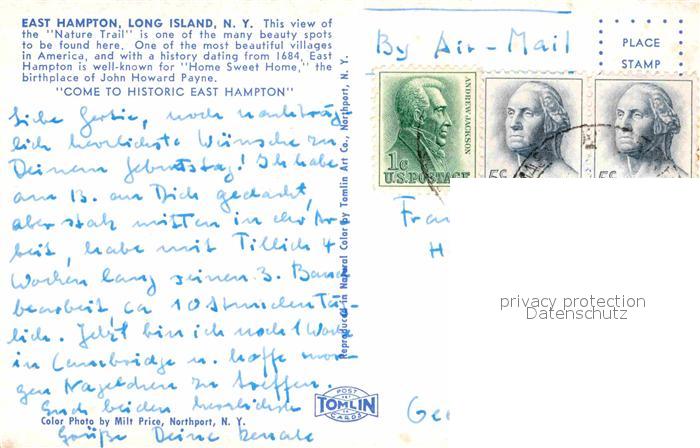 EAST HAMPTON, LONG ISLAND, N. Y. This view of
the "Nature Trail" is one of the many beauty spots
to be found here. One of the most beautiful villages
in America, and with a history dating from 1684, East
Hampton is well-known for "Home Sweet Home," the
birthplace of John Howard Payne.
"COME TO HISTORIC EAST HAMPTON"
Liebe Gertie, noch nachträg
lich herzlichste Wünsche zu
Deinem Geburtstag! Ich habe
am 13. an Dich gedacht,
aber stak mitten in der Ar
beit, habe mit Tillich 4
Wochen lang seinen 3. Band
bearbeitet, ca 10 Stunden täg
lich. Jetzt bin ich noch 1 Woche
in Cambridge u. hoffe mor
gen zu treffen.
Euch beiden herzlichste
Color Photo by Milt Price, Northport, N. Y.
Grüße Deine Renate
Reproduced in Natural Color by Tomlin Art Co., Northport, N. Y.
POST
TOMLIN
CARDS
By Air-Mail
PLACE
STAMP
ANDREW JACKSON
1c
U.S. POSTAGE
5c
5c
Fra
H
privacy protection
Datenschutz
Ge